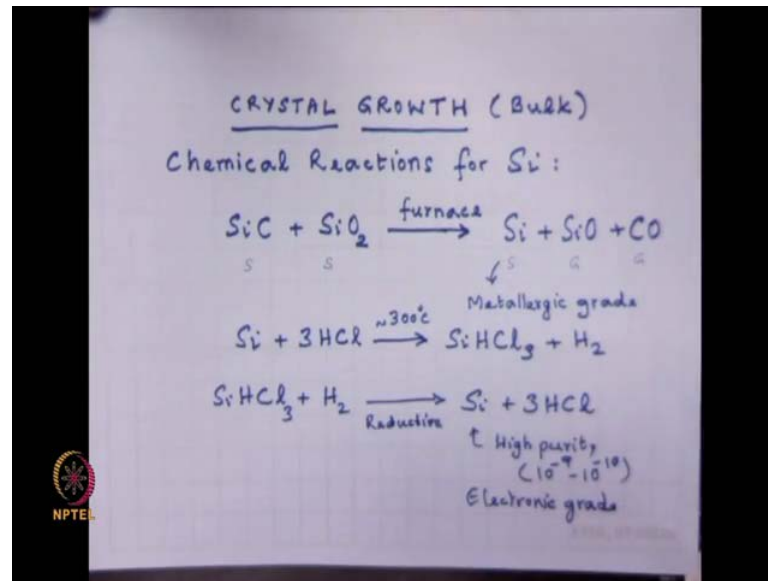 CRYSTAL GROWTH (Bulk)
Chemical Reactions for Si :
furnace
SiC + SiO2 → Si + SiO + CO
S S S G G
Metallergic grade
Si + 3HCl ~300°C → SiHCl3 + H2
SiHCl3 + H2 → Si + 3HCl
Reductive
High purity
(10^-9 - 10^-10)
Electronic grade
NPTEL